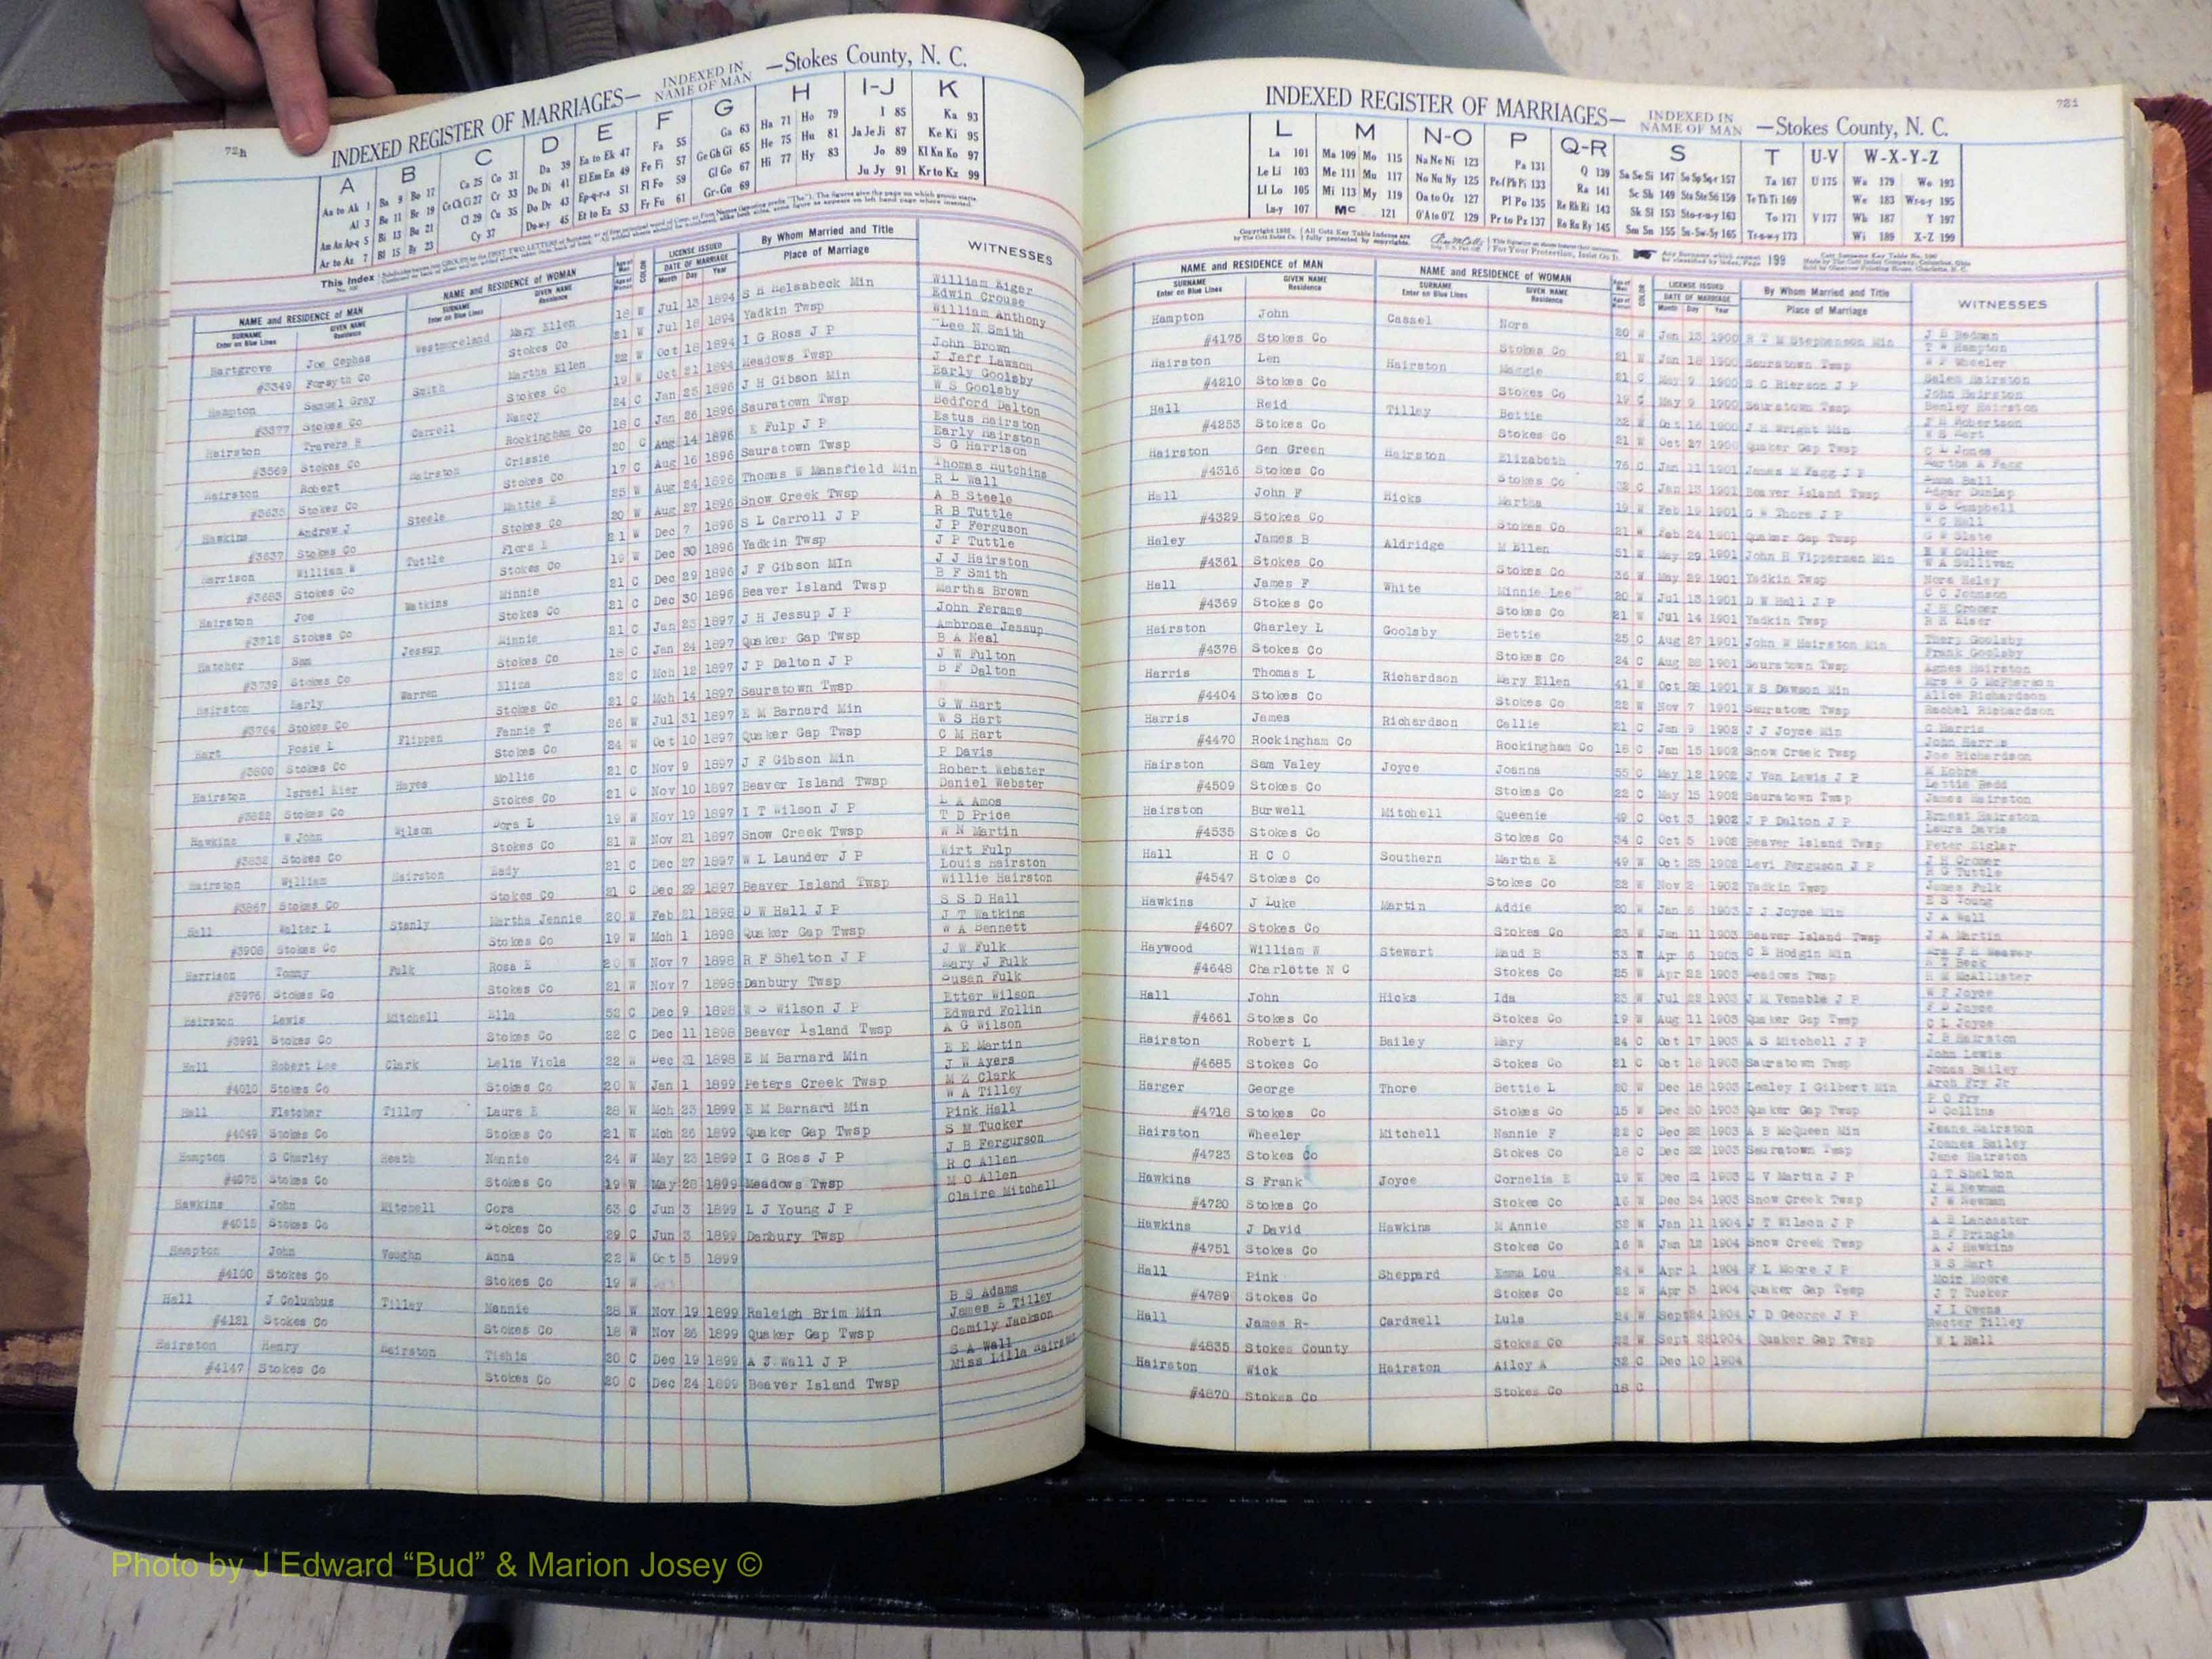 72h
INDEXED REGISTER OF MARRIAGES— INDEXED IN NAME OF MAN —Stokes County, N. C.
A B C D E F G H I-J K
Aa to Ak 1 Ba 9 Bo 17 Ca 25 Co 31 Da 39 Ea to Ek 47 Fa 55 Ga 63 Ha 71 Ho 79 I 85 Ka 93
Al 3 Be 11 Br 19 Ce Ch Ci 27 Cr 33 De Di 41 El Em En 49 Fe Fi 57 Ge Gh Gi 65 He 75 Hu 81 Ja Je Ji 87 Ke Ki 95
Am An Ap-q 5 Bi 13 Bu 21 Cl 29 Cu 35 Do Dr 43 Ep-q-r-s 51 Fl Fo 59 Gl Go 67 Hi 77 Hy 83 Jo 89 Kl Kn Ko 97
Ar to Az 7 Bl 15 By 23 Cy 37 Du-w-y 45 Et to Ez 53 Fr Fu 61 Gr-Gu 69 Ju Jy 91 Kr to Kz 99
NAME and RESIDENCE of MAN NAME and RESIDENCE of WOMAN COLOR LICENSE ISSUED By Whom Married and Title WITNESSES
SURNAME GIVEN NAME SURNAME GIVEN NAME DATE OF MARRIAGE Place of Marriage
Enter on Blue Lines Residence Enter on Blue Lines Residence Month Day Year
Hartgrove Joe Cephas Westmoreland Mary Ellen 18 W Jul 13 1894 S H Helsabeck Min William Kiger
Edwin Crouse
#3349 Forsyth Co Stokes Co 21 W Jul 18 1894 Yadkin Twsp William Anthony
Hampton Samuel Gray Smith Martha Ellen 22 W Oct 18 1894 I G Ross J P Lee N Smith
John Brown
#3377 Stokes Co Stokes Co 19 W Oct 21 1894 Meadows Twsp J Jeff Lawson
Hairston Travers H Carroll Nancy 24 C Jan 25 1896 J H Gibson Min Early Goolsby
W S Goolsby
#3569 Stokes Co Rockingham Co 18 C Jan 26 1896 Sauratown Twsp Bedford Dalton
Hairston Robert Hairston Crissie 20 C Aug 14 1896 E Fulp J P Estus Hairston
Early Hairston
#3635 Stokes Co Stokes Co 17 C Aug 16 1896 Sauratown Twsp S G Harrison
Hawkins Andrew J Steele Mattie E 25 W Aug 24 1896 Thomas W Mansfield Min Thomas Hutchins
R L Wall
#3637 Stokes Co Stokes Co 20 W Aug 27 1896 Snow Creek Twsp A B Steele
Harrison William W Tuttle Flora E 21 W Dec 7 1896 S L Carroll J P R B Tuttle
J P Ferguson
#3683 Stokes Co Stokes Co 19 W Dec 30 1896 Yadkin Twsp J P Tuttle
Hairston Joe Watkins Minnie 21 C Dec 29 1896 J F Gibson MIn J J Hairston
B F Smith
#3712 Stokes Co Stokes Co 21 C Dec 30 1896 Beaver Island Twsp Martha Brown
Hatcher Sam Jessup Minnie 21 C Jan 23 1897 J H Jessup J P John Ferame
Ambrose Jessup
#3739 Stokes Co Stokes Co 18 C Jan 24 1897 Quaker Gap Twsp B A Neal
Hairston Early Warren Eliza 22 C Mch 12 1897 J P Dalton J P J W Fulton
B F Dalton
#3764 Stokes Co Stokes Co 21 C Mch 14 1897 Sauratown Twsp
Hart Posie L Flippen Fannie T 26 W Jul 31 1897 E M Barnard Min G W Hart
W S Hart
#3800 Stokes Co Stokes Co 24 W Oct 10 1897 Quaker Gap Twsp C M Hart
Hairston Israel Kier Hayes Mollie 21 C Nov 9 1897 J F Gibson Min P Davis
Robert Webster
#3822 Stokes Co Stokes Co 21 C Nov 10 1897 Beaver Island Twsp Daniel Webster
Hawkins W John Wilson Dora L 19 W Nov 19 1897 I T Wilson J P L A Amos
T D Price
#3832 Stokes Co Stokes Co 21 W Nov 21 1897 Snow Creek Twsp W N Martin
Hairston William Hairston Eady 21 C Dec 27 1897 W L Launder J P Wirt Fulp
Louis Hairston
#3867 Stokes Co Stokes Co 21 C Dec 29 1897 Beaver Island Twsp Willie Hairston
Hall Walter L Stanly Martha Jennie 20 W Feb 21 1898 D W Hall J P S S D Hall
J T Watkins
#3908 Stokes Co Stokes Co 19 W Mch 1 1898 Quaker Gap Twsp W A Bennett
Harrison Tommy Fulk Rosa E 20 W Nov 7 1898 R F Shelton J P J W Fulk
Mary J Fulk
#3976 Stokes Co Stokes Co 21 W Nov 7 1898 Danbury Twsp Susan Fulk
Hairston Lewis Mitchell Ella 52 C Dec 9 1898 W S Wilson J P Etter Wilson
Edward Follin
#3991 Stokes Co Stokes Co 22 C Dec 11 1898 Beaver Island Twsp A G Wilson
Hall Robert Lee Clark Lelia Viola 22 W Dec 31 1898 E M Barnard Min E E Martin
J W Ayers
#4010 Stokes Co Stokes Co 20 W Jan 1 1899 Peters Creek Twsp M Z Clark
Hall Fletcher Tilley Laura E 28 W Mch 23 1899 E M Barnard Min W A Tilley
Pink Hall
#4049 Stokes Co Stokes Co 21 W Mch 26 1899 Quaker Gap Twsp S M Tucker
Hampton S Charley Heath Nannie 24 W May 23 1899 I G Ross J P J B Fergurson
R C Allen
#4075 Stokes Co Stokes Co 19 W May 28 1899 Meadows Twsp M O Allen
Hawkins John Mitchell Cora 63 C Jun 3 1899 L J Young J P Claire Mitchell
#4018 Stokes Co Stokes Co 29 C Jun 3 1899 Danbury Twsp
Hampton John Vaughn Anna 22 W Oct 5 1899
#4100 Stokes Co Stokes Co 19 W
Hall J Columbus Tilley Nannie 28 W Nov 19 1899 Raleigh Brim Min B S Adams
James E Tilley
#4121 Stokes Co Stokes Co 18 W Nov 26 1899 Quaker Gap Twsp Camily Jackson
Hairston Henry Hairston Tishia 20 C Dec 19 1899 A J Wall J P S A Wall
Miss Lilla Hairston
#4147 Stokes Co Stokes Co 20 C Dec 24 1899 Beaver Island Twsp
72i
INDEXED REGISTER OF MARRIAGES— INDEXED IN NAME OF MAN —Stokes County, N. C.
L M N-O P Q-R S T U-V W-X-Y-Z
La 101 Ma 109 Mo 115 Na Ne Ni 123 Pa 131 Q 139 Sa Se Si 147 So Sp Sq-r 157 Ta 167 U 175 Wa 179 Wo 193
Le Li 103 Me 111 Mu 117 No Nu Ny 125 Pe-f Ph Pi 133 Ra 141 Sc Sh 149 Sta Ste Sti 159 Te Th Ti 169 We 183 Wr-u-y 195
Ll Lo 105 Mi 113 My 119 Oa to Oz 127 Pl Po 135 Re Rh Ri 143 Sk Sl 153 Sto-r-u-y 163 To 171 V 177 Wh 187 Y 197
Lu-y 107 Mc 121 O'A to O'Z 129 Pr to Pz 137 Ro Ru Ry 145 Sm Sn 155 Su-Sw-Sy 165 Tr-u-w-y 173 Wi 189 X-Z 199
NAME and RESIDENCE of MAN NAME and RESIDENCE of WOMAN COLOR LICENSE ISSUED By Whom Married and Title WITNESSES
SURNAME GIVEN NAME SURNAME GIVEN NAME DATE OF MARRIAGE Place of Marriage
Enter on Blue Lines Residence Enter on Blue Lines Residence Month Day Year
Hampton John Cassel Nora 20 W Jan 13 1900 R T M Stephenson Min J E Redman
T W Hampton
#4175 Stokes Co Stokes Co 21 W Jan 18 1900 Sauratown Twsp W F Wheeler
Hairston Len Hairston Maggie 21 C May 9 1900 S C Rierson J P Salem Hairston
John Hairston
#4210 Stokes Co Stokes Co 19 C May 9 1900 Sauratown Twsp Henley Hairston
Hall Reid Tilley Bettie 32 W Oct 16 1900 J H Wright Min J H Robertson
W S Hart
#4253 Stokes Co Stokes Co 21 W Oct 27 1900 Quaker Gap Twsp C L Jones
Hairston Gen Green Hairston Elizabeth 76 C Jan 11 1901 James M Fagg J P Martha A Fagg
Emma Hall
#4316 Stokes Co Stokes Co 32 C Jan 13 1901 Beaver Island Twsp Edgar Dunlap
Hall John F Hicks Martha 19 W Feb 19 1901 G W Thore J P W S Campbell
W C Hall
#4329 Stokes Co Stokes Co 21 W Feb 24 1901 Quaker Gap Twsp G W Slate
Haley James B Aldridge M Ellen 51 W May 29 1901 John H Vipperman Min E W Culler
W A Sullivan
#4361 Stokes Co Stokes Co 36 W May 29 1901 Yadkin Twsp Nora Haley
Hall James F White Minnie Lee 20 W Jul 13 1901 D W Hall J P C C Johnson
J H Cromer
#4369 Stokes Co Stokes Co 21 W Jul 14 1901 Yadkin Twsp R H Kiser
Hairston Charley L Goolsby Bettie 25 C Aug 27 1901 John W Hairston Min Thery Goolsby
Frank Goolsby
#4378 Stokes Co Stokes Co 24 C Aug 28 1901 Sauratown Twsp Agnes Hairston
Harris Thomas L Richardson Mary Ellen 41 W Oct 28 1901 W S Dawson Min Mrs W G McPherson
Alice Richardson
#4404 Stokes Co Stokes Co 22 W Nov 7 1901 Sauratown Twsp Rachel Richardson
Harris James Richardson Callie 21 C Jan 9 1902 J J Joyce Min C Harris
John Harris
#4470 Rockingham Co Rockingham Co 18 C Jan 15 1902 Snow Creek Twsp Joe Richardson
Hairston Sam Valey Joyce Joanna 55 C May 12 1902 J Van Lewis J P M Kobre
Lettie Redd
#4509 Stokes Co Stokes Co 22 C May 15 1902 Sauratown Twsp James Hairston
Hairston Burwell Mitchell Queenie 49 C Oct 3 1902 J P Dalton J P Ernest Hairston
Laura Davis
#4535 Stokes Co Stokes Co 34 C Oct 5 1902 Beaver Island Twsp Peter Zigler
Hall H C O Southern Martha E 49 W Oct 25 1902 Levi Ferguson J P J H Cromer
R G Tuttle
#4547 Stokes Co Stokes Co 22 W Nov 2 1902 Yadkin Twsp James Fulk
Hawkins J Luke Martin Addie 20 W Jan 6 1903 J J Joyce Min E S Young
J A Hall
#4607 Stokes Co Stokes Co 23 W Jan 11 1903 Beaver Island Twsp J A Martin
Haywood William W Stewart Maud B 33 W Apr 6 1903 C E Hodgin Min Mrs F H Weaver
A T Beck
#4648 Charlotte N C Stokes Co 25 W Apr 22 1903 Meadows Twsp H M McAllister
Hall John Hicks Ida 23 W Jul 22 1903 J M Venable J P W F Joyce
F D Joyce
#4661 Stokes Co Stokes Co 19 W Aug 11 1903 Quaker Gap Twsp C L Joyce
Hairston Robert L Bailey Mary 24 C Oct 17 1903 A S Mitchell J P J B Hairston
John Lewis
#4685 Stokes Co Stokes Co 21 C Oct 18 1903 Sauratown Twsp Jonas Bailey
Harger George Thore Bettie L 20 W Dec 16 1903 Lemley I Gilbert Min Arch Fry Jr
P O Fry
#4718 Stokes Co Stokes Co 15 W Dec 20 1903 Quaker Gap Twsp D Collins
Hairston Wheeler Mitchell Nannie F 22 C Dec 22 1903 A B McQueen Min Jeane Hairston
Joanes Bailey
#4723 Stokes Co Stokes Co 18 C Dec 22 1903 Sauratown Twsp Jane Hairston
Hawkins S Frank Joyce Cornelia E 19 W Dec 21 1903 E V Martin J P G T Shelton
J M Newman
#4720 Stokes Co Stokes Co 16 W Dec 24 1903 Snow Creek Twsp J W Newman
Hawkins J David Hawkins M Annie 32 W Jan 11 1904 J T Wilson J P A E Lancaster
B F Pringle
#4751 Stokes Co Stokes Co 16 W Jan 12 1904 Snow Creek Twsp A J Hawkins
Hall Pink Sheppard Emma Lou 24 W Apr 1 1904 F L Moore J P W S Hart
Moir Moore
#4789 Stokes Co Stokes Co 22 W Apr 3 1904 Quaker Gap Twsp J T Tucker
Hall James R- Cardwell Lula 24 W Sept 24 1904 J D George J P J I Owens
Reeter Tilley
#4835 Stokes County Stokes Co 22 W Sept 28 1904 Quaker Gap Twsp W L Hall
Hairston Wick Hairston Ailcy A 32 C Dec 10 1904
#4870 Stokes Co Stokes Co 18 C
Photo by J Edward “Bud” & Marion Josey ©